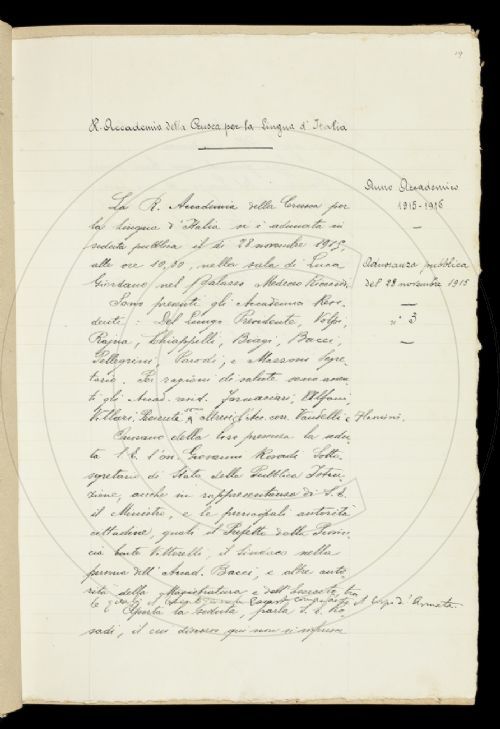 19
R. Accademia della Crusca per la Lingua d'Italia
Anno Accademico
1915-1916
La R. Accademia della Crusca per
la Lingua d'Italia si è adunata in
seduta pubblica il dì 28 novembre 1915,
alle ore 10,30, nella sala di Luca
Giordano, nel Palazzo Mediceo Riccardi.
Adunanza pubblica
del 28 novembre 1915
n° 3
Sono presenti gli Accademici Resi-
denti: Del Lungo Presidente, Volpi,
Rajna, Chiappelli, Biagi, Bacci,
Pellegrini, Parodi, e Mazzoni Segre-
tario. Per ragioni di salute sono assen-
ti gli Accad. resid. Tortoli,
Villari, e altresì i Soci corr. Vandelli e Flamini.
Onorano della loro presenza la sedu-
ta S. E. l'on. Giovanni Rosadi Sotto-
segretario di Stato della Pubblica Istru-
zione, anche in rappresentanza di S. E.
il Ministro, e le principali autorità
cittadine, quali il Prefetto della Provin-
cia conte Vittorelli, il Sindaco nella
persona dell'Accad. Bacci, e altre auto-
rità della Magistratura e dell'Esercito, tra
le quali il comandante il Corpo d'Armata.
Aperta la seduta, parla S. E. Ro-
sadi, il cui discorso qui non si riproduce